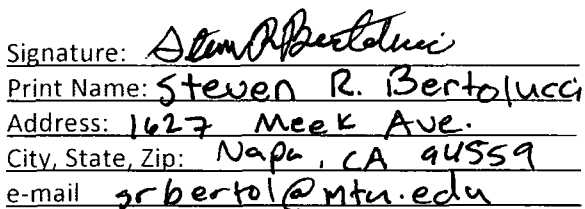 Signature: Steven R Bertolucci
Print Name: Steven R. Bertolucci
Address: 1627 Meek Ave.
City, State, Zip: Napa, CA 94559
e-mail grbertol@mtu.edu